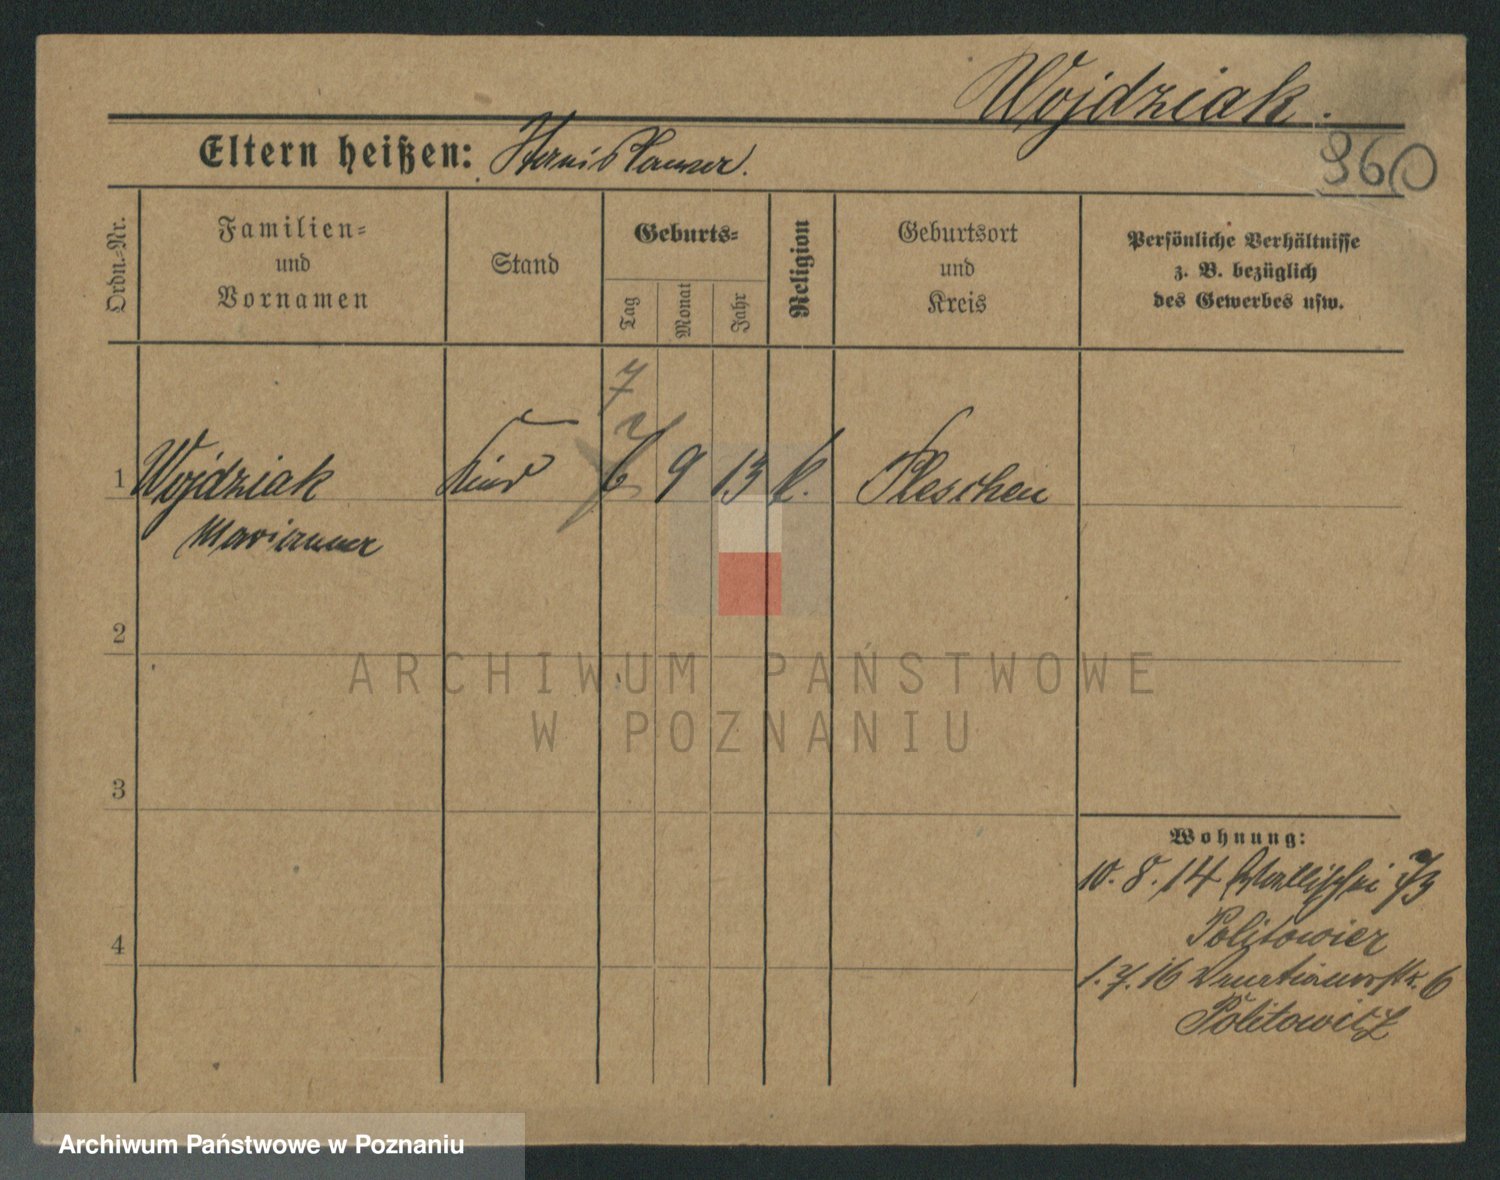 Wojdziak.
960
Eltern heißen: Stanislawa.
Ordn.-Nr.
Familien-
und
Vornamen
Stand
Geburts-
Tag
Monat
Jahr
Religion
Geburtsort
und
Kreis
Persönliche Verhältnisse
z. B. bezüglich
des Gewerbes usw.
7
1 Wojdziak Kind 9 13 k. Pleschen
Marianna
2
3
4
Wohnung:
10. 8. 14 Wallischei 73
Politowicz
1. 7. 16 6
Politowicz
ARCHIWUM PAŃSTWOWE
W POZNANIU
Archiwum Państwowe w Poznaniu